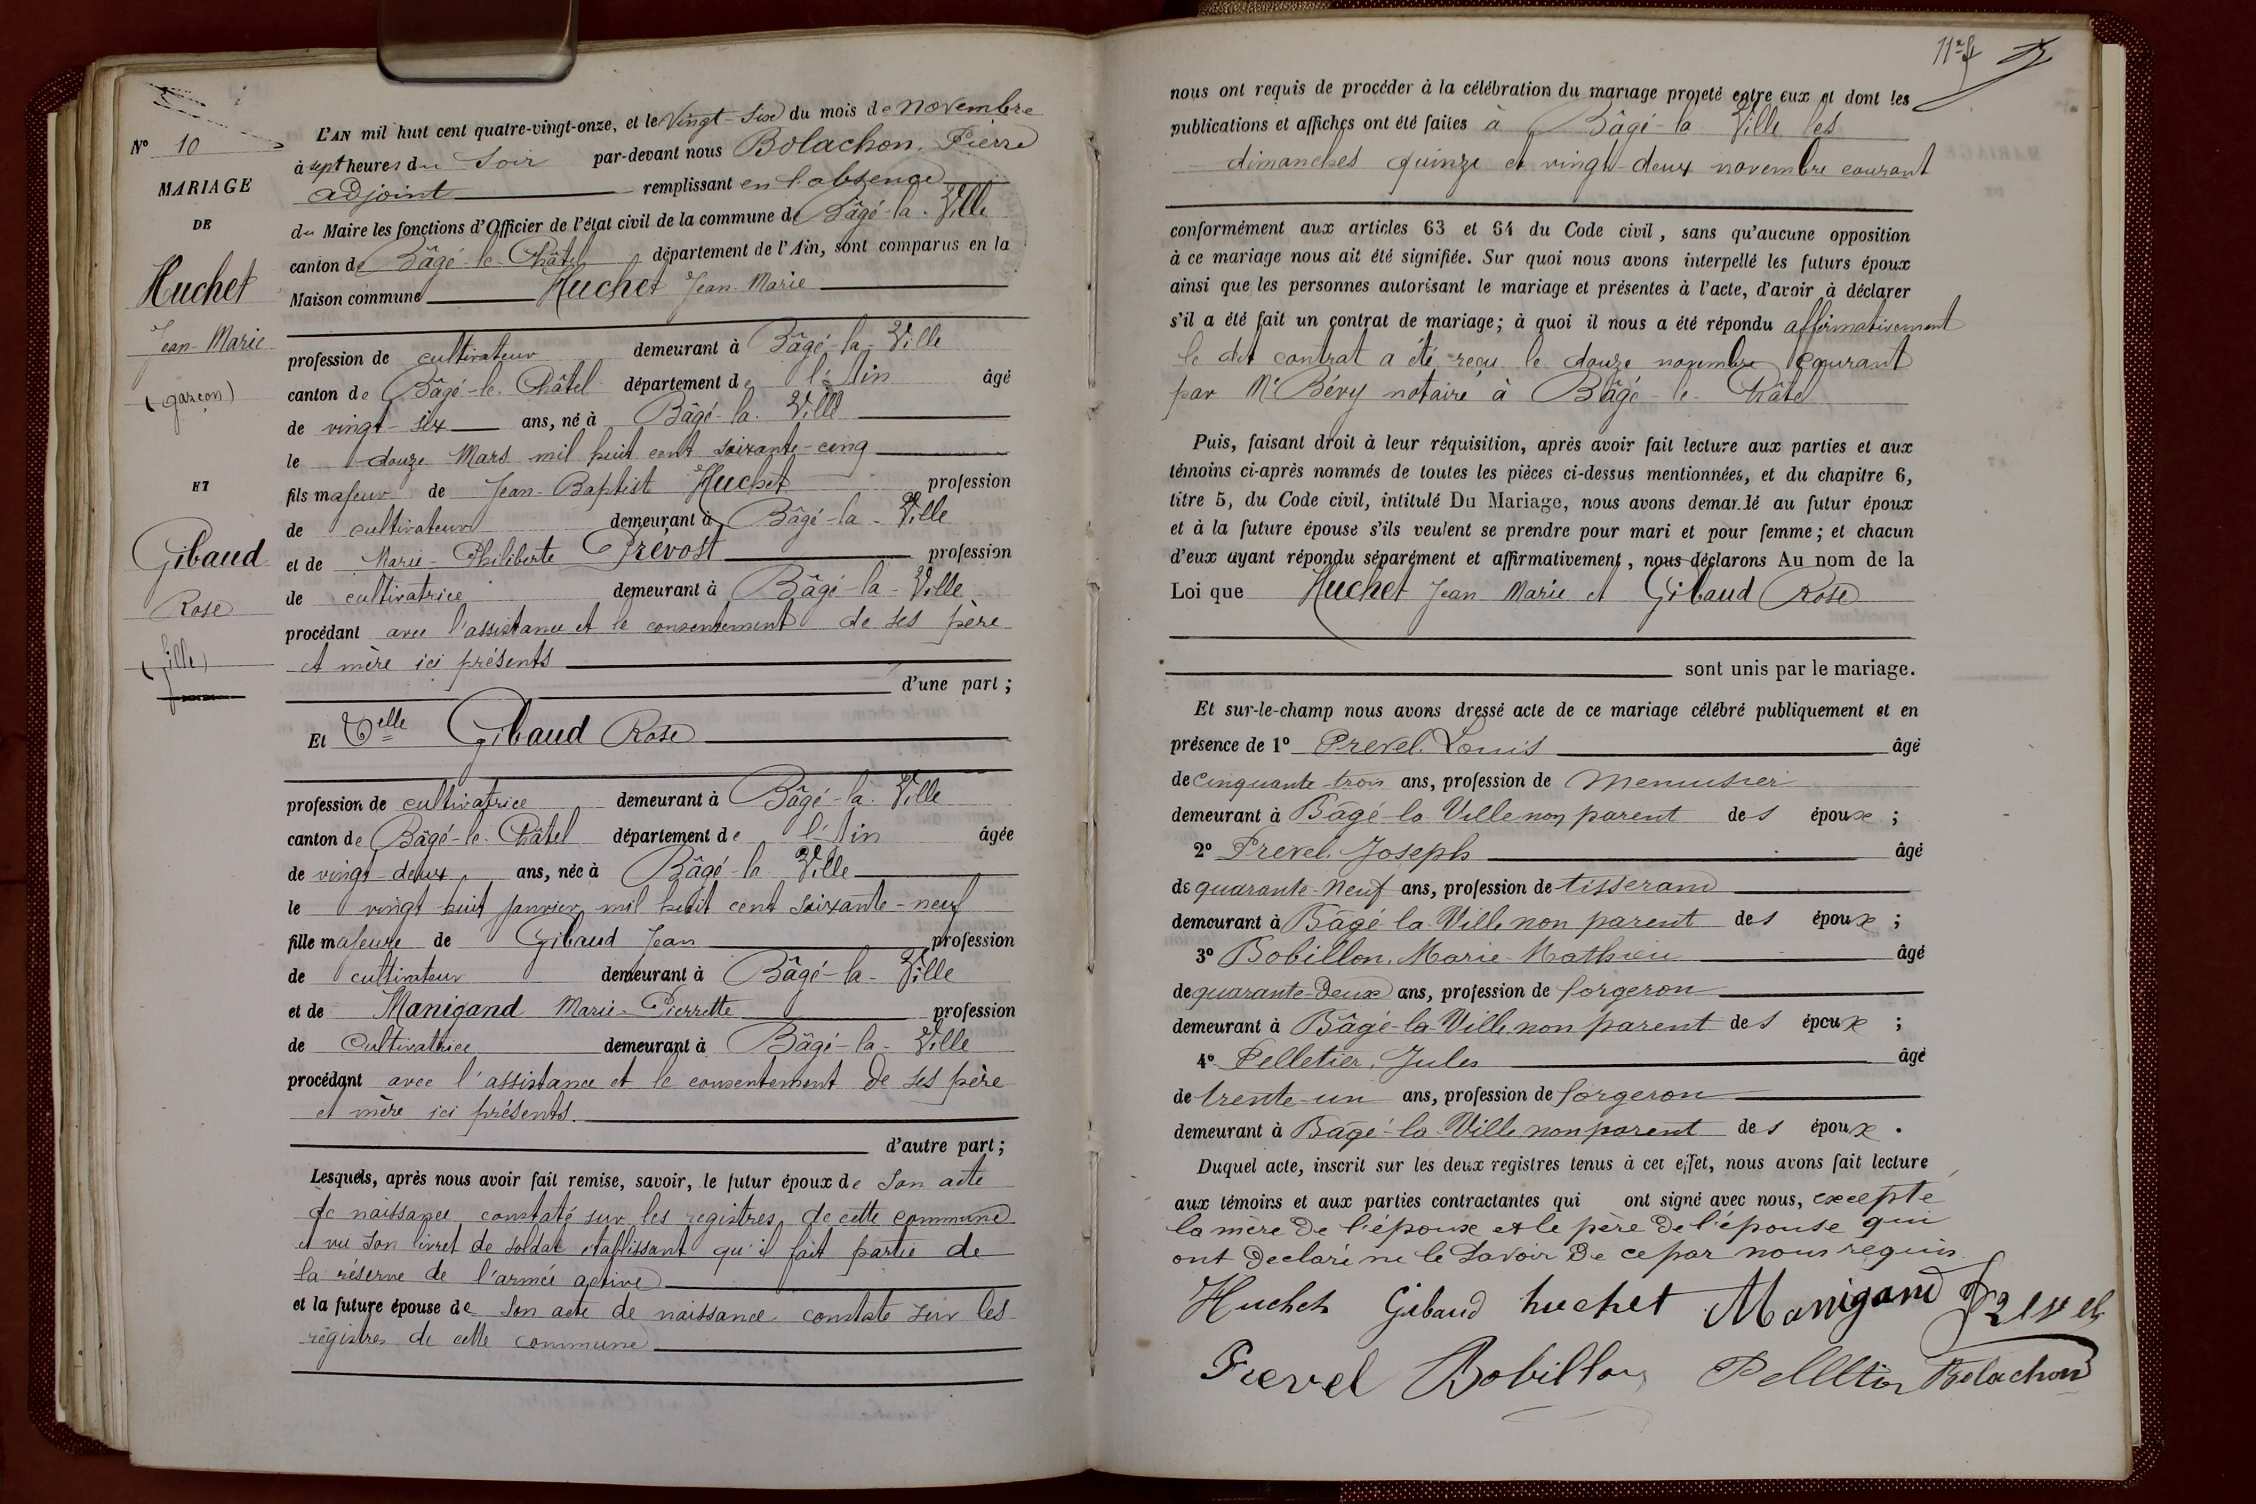 N° 10
MARIAGE
DE
Huchet
Jean-Marie
(garçon)
ET
Gibaud
Rose
(fille)
L'AN mil huit cent quatre-vingt-onze, et le vingt-six du mois de novembre
à sept heures du soir par-devant nous Bolachon, Pierre
adjoint remplissant en l'absence
du Maire les fonctions d'Officier de l'état civil de la commune de Bâgé-la-Ville
canton de Bâgé-le-Châtel département de l'Ain, sont comparus en la
Maison commune Huchet Jean-Marie
profession de cultivateur demeurant à Bâgé-la-Ville
canton de Bâgé-le-Châtel département de l'Ain âgé
de vingt-six ans, né à Bâgé-la-Ville
le douze Mars mil huit cent soixante-cinq
fils majeur de Jean-Baptist Huchet profession
de cultivateur demeurant à Bâgé-la-Ville
et de Marie-Philiberte Prévost profession
de cultivatrice demeurant à Bâgé-la-Ville
procédant avec l'assistance et le consentement de ses père
et mère ici présents
d'une part;
Et Delle Gibaud Rose
profession de cultivatrice demeurant à Bâgé-la-Ville
canton de Bâgé-le-Châtel département de l'Ain âgée
de vingt-deux ans, née à Bâgé-la Ville
le vingt huit janvier mil huit cent soixante-neuf
fille majeure de Gibaud Jean profession
de cultivateur demeurant à Bâgé-la-Ville
et de Manigand Marie-Pierrette profession
de Cultivatrice demeurant à Bâgé-la-Ville
procédant avec l'assistance et le consentement de ses père
et mère ici présents.
d'autre part;
Lesquels, après nous avoir fait remise, savoir, le futur époux de son acte
de naissance constaté sur les registres de cette commune
et vu son livret de soldat établissant qu'il fait partie de
la réserve de l'armée active
et la future épouse de son acte de naissance constaté sur les
registres de cette commune
nous ont requis de procéder à la célébration du mariage projeté entre eux et dont les
publications et affiches ont été faites à Bâgé-la Ville les
dimanches quinze et vingt-deux novembre courant
conformément aux articles 63 et 64 du Code civil, sans qu'aucune opposition
à ce mariage nous ait été signifiée. Sur quoi nous avons interpellé les futurs époux
ainsi que les personnes autorisant le mariage et présentes à l'acte, d'avoir à déclarer
s'il a été fait un contrat de mariage; à quoi il nous a été répondu affirmativement
le dit contrat a été reçu le douze novembre courant
par Me Bévy notaire à Bâgé-le-Châtel
Puis, faisant droit à leur réquisition, après avoir fait lecture aux parties et aux
témoins ci-après nommés de toutes les pièces ci-dessus mentionnées, et du chapitre 6,
titre 5, du Code civil, intitulé Du Mariage, nous avons demandé au futur époux
et à la future épouse s'ils veulent se prendre pour mari et pour femme; et chacun
d'eux ayant répondu séparément et affirmativement, nous déclarons Au nom de la
Loi que Huchet Jean Marie et Gibaud Rose
sont unis par le mariage.
Et sur-le-champ nous avons dressé acte de ce mariage célébré publiquement et en
présence de 1° Prevel, Louis âgé
de cinquante-trois ans, profession de menuisier
demeurant à Bâgé-la Ville non parent des époux;
2° Prevel, Joseph âgé
de quarante-neuf ans, profession de tisserand
demeurant à Bâgé la Ville non parent des époux;
3° Bobillon, Marie-Mathieu âgé
de quarante-deux ans, profession de forgeron
demeurant à Bâgé-la-Ville non parent des époux;
4° Pelletier, Jules âgé
de trente-un ans, profession de forgeron
demeurant à Bâgé-la-Ville non parent des époux.
Duquel acte, inscrit sur les deux registres tenus à cet effet, nous avons fait lecture
aux témoins et aux parties contractantes qui ont signé avec nous, excepté
la mère de l'époux et le père de l'épouse qui
ont déclaré ne le savoir de ce par nous requis
Huchet Gibaud huchet Manigand Prevel
Prevel Bobillon Pelletier Bolachon